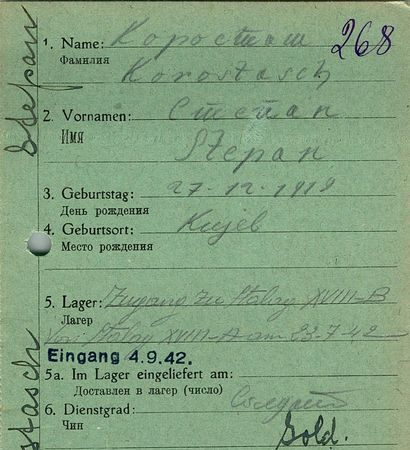 268
1. Name: Коросташ
Фамилия
Korostasch
2. Vornamen: Степан
ИМЯ
Stepan
3. Geburtstag: 27-12-1919
День рождения
4. Geburtsort: Kijev
Место рождения
5. Lager: Zugang zu Stalag XVIII-B
Лагерь
Von Stalag XVIII-A am 23-7-42
Eingang 4.9.42.
5a. Im Lager eingeliefert am:
Доставлен в лагер (число)
6. Dienstgrad: Солдат
Чин
Sold.
Stepan
stasch